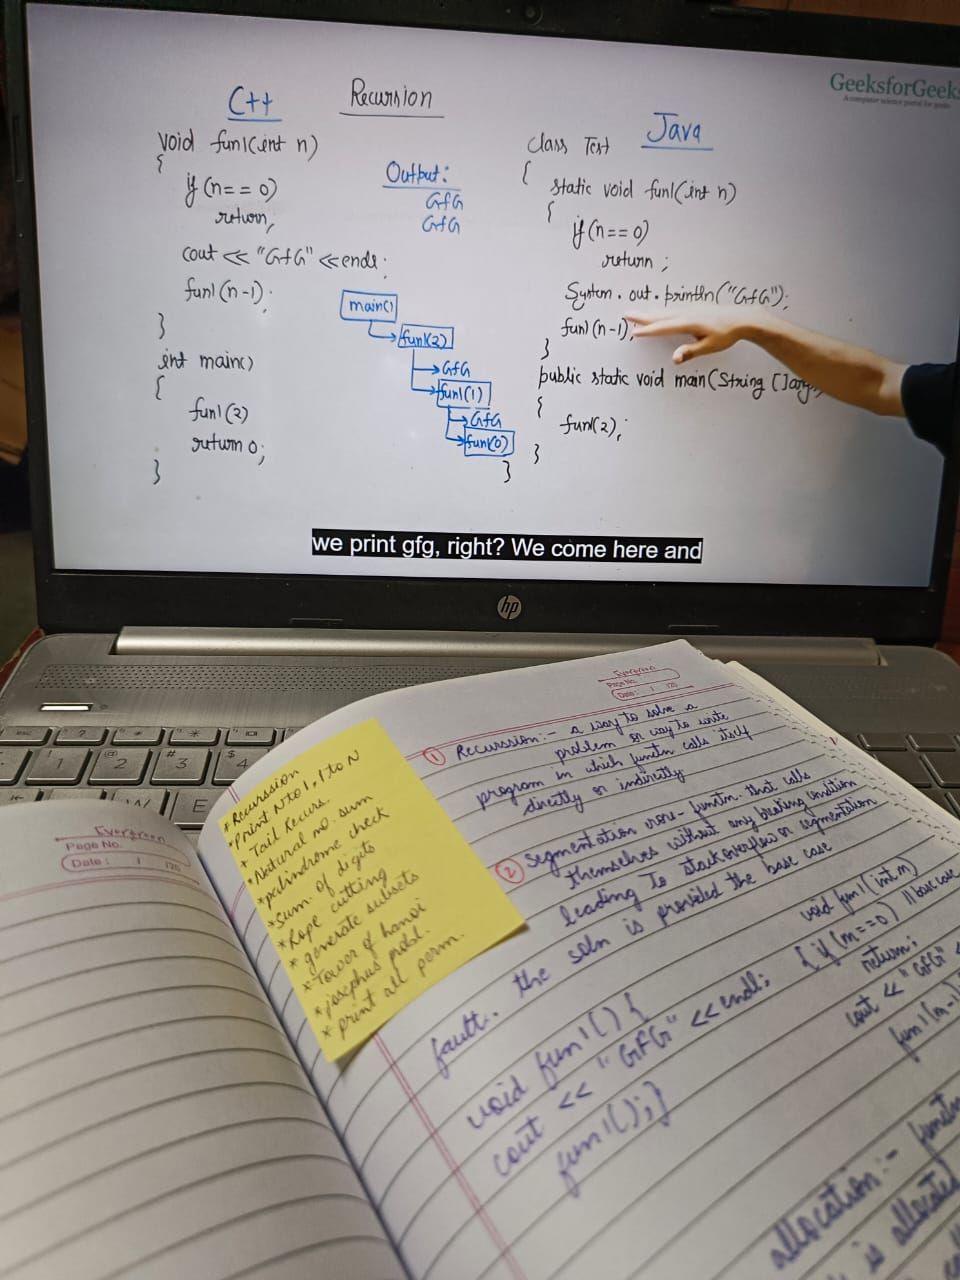 GeeksforGeeks
A computer science portal for geeks
C++
Recursion
Java
void fun1(int n)
{
if (n == 0)
return;
cout << "GfG" << endl;
fun1(n-1);
}
int main()
{
fun1(2)
return 0;
}
Output:
GfG
GfG
main()
fun1(2)
GfG
fun1(1)
GfG
fun1(0)
class Test
{
static void fun1(int n)
{
if (n == 0)
return;
System.out.println("GfG");
fun1(n-1);
}
public static void main(String []args
{
fun1(2);
}
}
we print gfg, right? We come here and
hp
esc
?
*
1
@
2
#
3
$
4
W
E
Evergreen
Page No.
Date: / / 120
* Recurssion
* Print N to 1, 1 to N
* Tail Recurs.
* Natural no. sum
* palindrome check
* Sum of digits
* Rope cutting
* generate subsets
* Tower of hanoi
* josephus probl.
* print all perm.
Evergreen
Page No.
Date: / / 120
① Recurssion :- a way to solve a
problem or way to write
program in which functn calls itself
directly or indirectly
② Segmentation error- functn. that calls
themselves without any breaking condition
leading to stack overflow or segmentation
fault. the soln is provided the base case
void fun1() {
cout << "GFG" << endl;
fun1();}
void fun1(int n)
{ if (n==0) || base case
return;
cout << "GFG" <
fun1(n-1)
allocation :- functn
is allocated